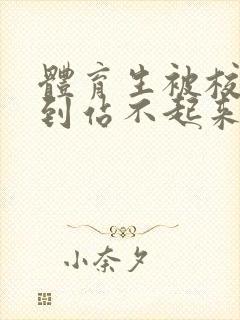 體育生被校
到佔不起來
小奈夕